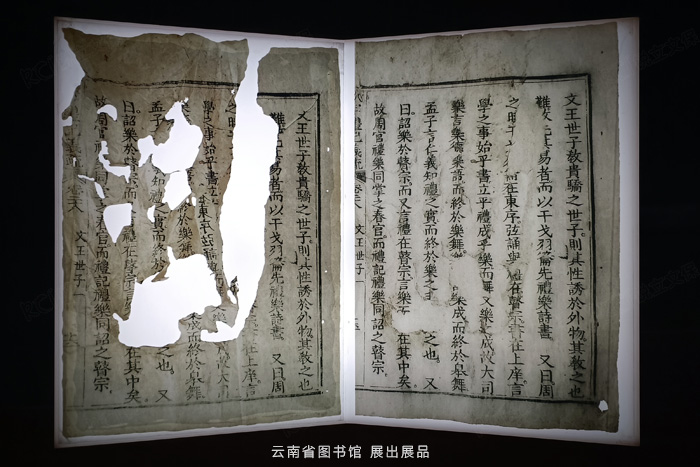 文王世子教貴驕之世子則其性誘於外物其教之也
難 其易者而以干戈羽籥先禮樂詩書 又曰周
之時 而在東序弦誦 禮在瞽宗書在上庠言
學之事始乎書立乎禮成乎樂而舞又樂之成故大司
樂言樂德樂語而終於樂舞 樂成而終於樂舞
孟子言仁義知禮之實而終於樂之 之也 又
曰詔樂於瞽宗而又言禮在瞽宗言樂 在其中矣
故周官禮樂同掌之春官而禮記禮樂同詔之瞽宗
禮記 卷六八 文王世子 一
文王世子教貴驕之世子則其性誘於外物其教之也
難 其易者而以干戈羽籥先禮樂詩書 又曰周
之時 在東序弦誦
學之事始乎書立 成故大司
樂 終於樂 樂成而終於樂舞
孟子 知禮之實而終 之也 又
曰詔樂於瞽宗而 言禮在瞽宗 在其中矣
故周官禮樂同掌之春官而禮記禮樂同詔之瞽宗
卷六八 文王世子 一
云南省图书馆 展出展品